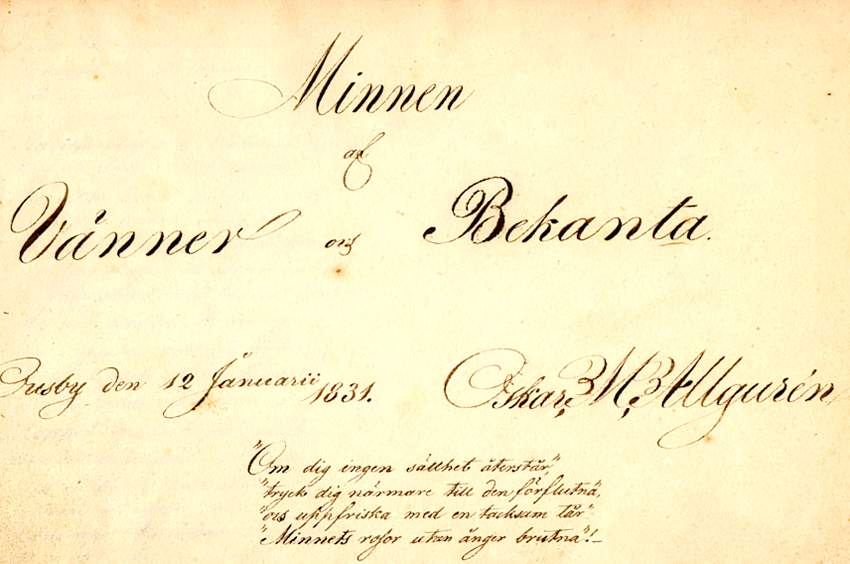 Minnen
af
Vänner och Bekanta.
den 12 Januarii 1831.
Oskar M. Allgurén
"Om dig ingen sällhet återstår,"
"tryck dig närmare till den förflutna,
"och uppfriska med en tacksam tår"
"Minnets rosor utan ånger brutna"!_